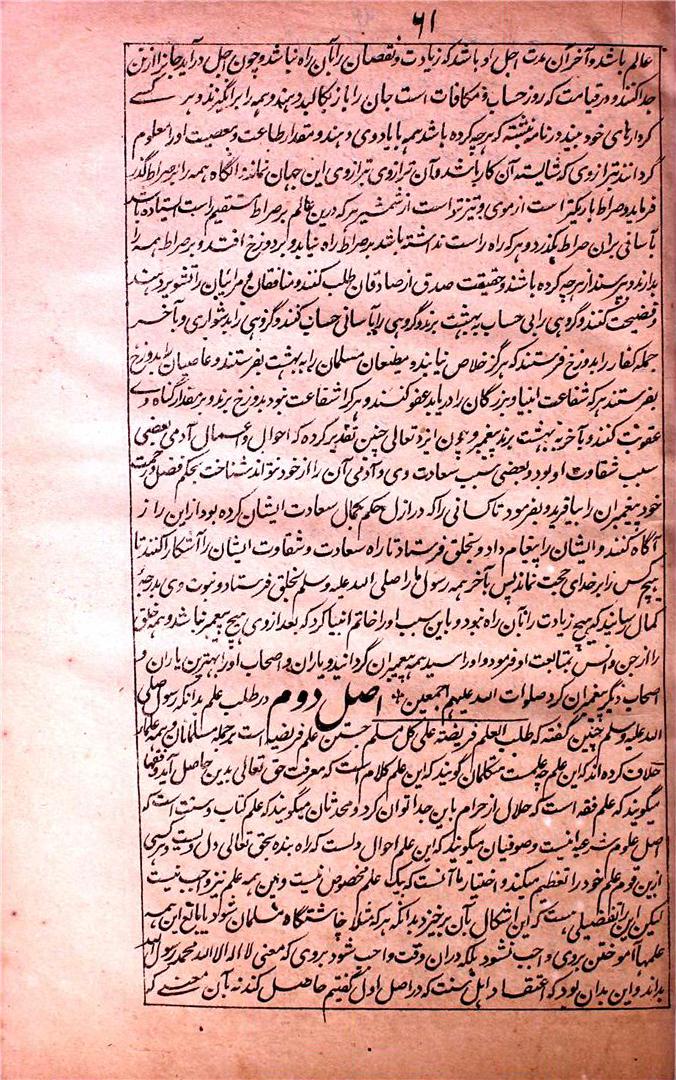 ۶۱
عالم باشد و آخر آن مدت اجل او باشد که زیادت و نقصان را بآن راه نباشد و چون اجل در آید جانرا از تن
جدا کنند و در قیامت که روز حساب و مکافات است جان را باز کالبد دهند و همه را برانگیزند و هر کسے
کردارهای خود بیند در نامه نبشته که هرچه کرده باشد همه با یاد وی دهند و مقدار طاعت و معصیت او را معلوم
گردانند بترازوی که شایسته آن کار باشد و آن ترازوی بترازوی این جهان نماند و آنگاه همه را بر صراط گذر
فرماید و صراط باریکتر است از موی و تیزتر است از شمشیر هر که درین عالم بر صراط مستقیم راست ایستاده باشد
بآسانی بران صراط بگذرد و هر که راه راست نداشته باشد بر صراط راه نیابد و بدوزخ افتد و بر صراط همه را
بدارند و پرسند از هرچه کرده باشند و حقیقت صدق از صادقان طلب کنند و منافقان و مرائیان را تشویر دهند
و فضیحت کنند و گروهی را بی حساب به بهشت برند و گروهی را بآسانی حساب کنند و گروهی را بدشواری و بآخر
جمله کفار را بدوزخ فرستند که هرگز خلاص نیابند و مطیعان مسلمان را به بهشت بفرستند و عاصیان را بدوزخ
بفرستند هر که شفاعت انبیا و بزرگان را دریابد عفو کنند و هر کرا شفاعت نبود بدوزخ برند و بر مقدار گناه وے
عقوبت کنند و بآخر به بهشت برند پیغمبر و چون ایزد تعالی چنین تقدیر کرده که احوال و اعمال آدمی بعضی
سبب شقاوت او بود و بعضی سبب سعادت وی و آدمی آن را از خود نتواند شناخت بحکم فضل و رحمت
خود پیغمبران را بیافرید و بفرمود تا کسانی را که در ازل حکم بکمال سعادت ایشان کرده بود از این راز
آگاه کنند و ایشان را پیغام داد و بخلق فرستاد تا راه سعادت و شقاوت ایشان را آشکارا کنند تا
هیچ کس را بر خدای حجت نماند پس بآخر همه رسول ما را صلی الله علیه و سلم بخلق فرستاد و نبوت وی بدرجهٔ
کمال رسانید که هیچ زیادت را بآن راه نبود و باین سبب او را خاتم انبیا کرد که بعد از وی هیچ پیغمبر نباشد و همه خلق
را از جن و انس بمتابعت او فرمود و او را سید همه پیغمبران گردانید و یاران و اصحاب او را بهترین یاران و
اصحاب دیگر پیغمبران کرد صلوات الله علیهم اجمعین اصل دوم در طلب علم بدانکه رسول صلی
الله علیه و سلم چنین گفته که طلب العلم فریضة علی کل مسلم جستن علم فریضه است بر جمله مسلمانان و همه علما
خلاف کرده اند که این علم چه علمست متکلمان گویند که این علم کلام است که معرفت حق تعالی بدین حاصل آید و فقها
میگویند که علم فقه است که حلال از حرام باین جدا توان کرد و محدثان میگویند که علم کتاب و سنت است که
اصل علوم شرع اینست و صوفیان میگویند که این علم احوال دلست که راه بنده بحق تعالی دل ویست و هر کسی
ازین قوم علم خود را تعظیم میکند و اختیار ما آنست که بیک علم مخصوص نیست و این همه علم نیز واجب نیست
لیکن این را تفضیلی هست که این اشکال بآن برخیزد بدانکه هر که مثلا چاشتگاه مسلمان شود یا بالغ این همه
علمها آموختن بروی واجب نشود بلکه دران وقت واجب شود بروی که معنی لا اله الا الله محمد رسول الله
بداند و این بدان بود که اعتقاد اهل سنت که در اصل اول گفتیم حاصل کند نه بآن معنے که